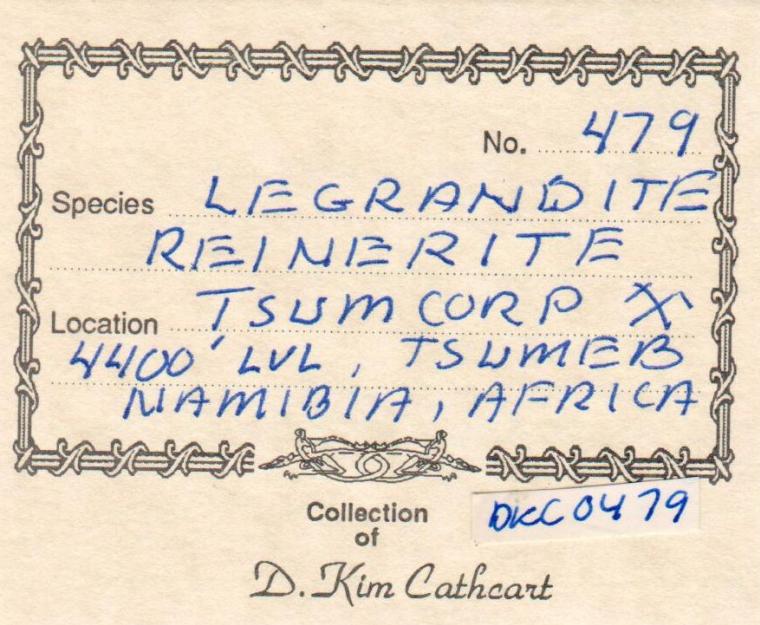 No. 479
Species LEGRANDITE
REINERITE
Location TSUMCORP X
4400' LVL, TSUMEB
NAMIBIA, AFRICA
Collection
of
DKC0479
D. Kim Cathcart